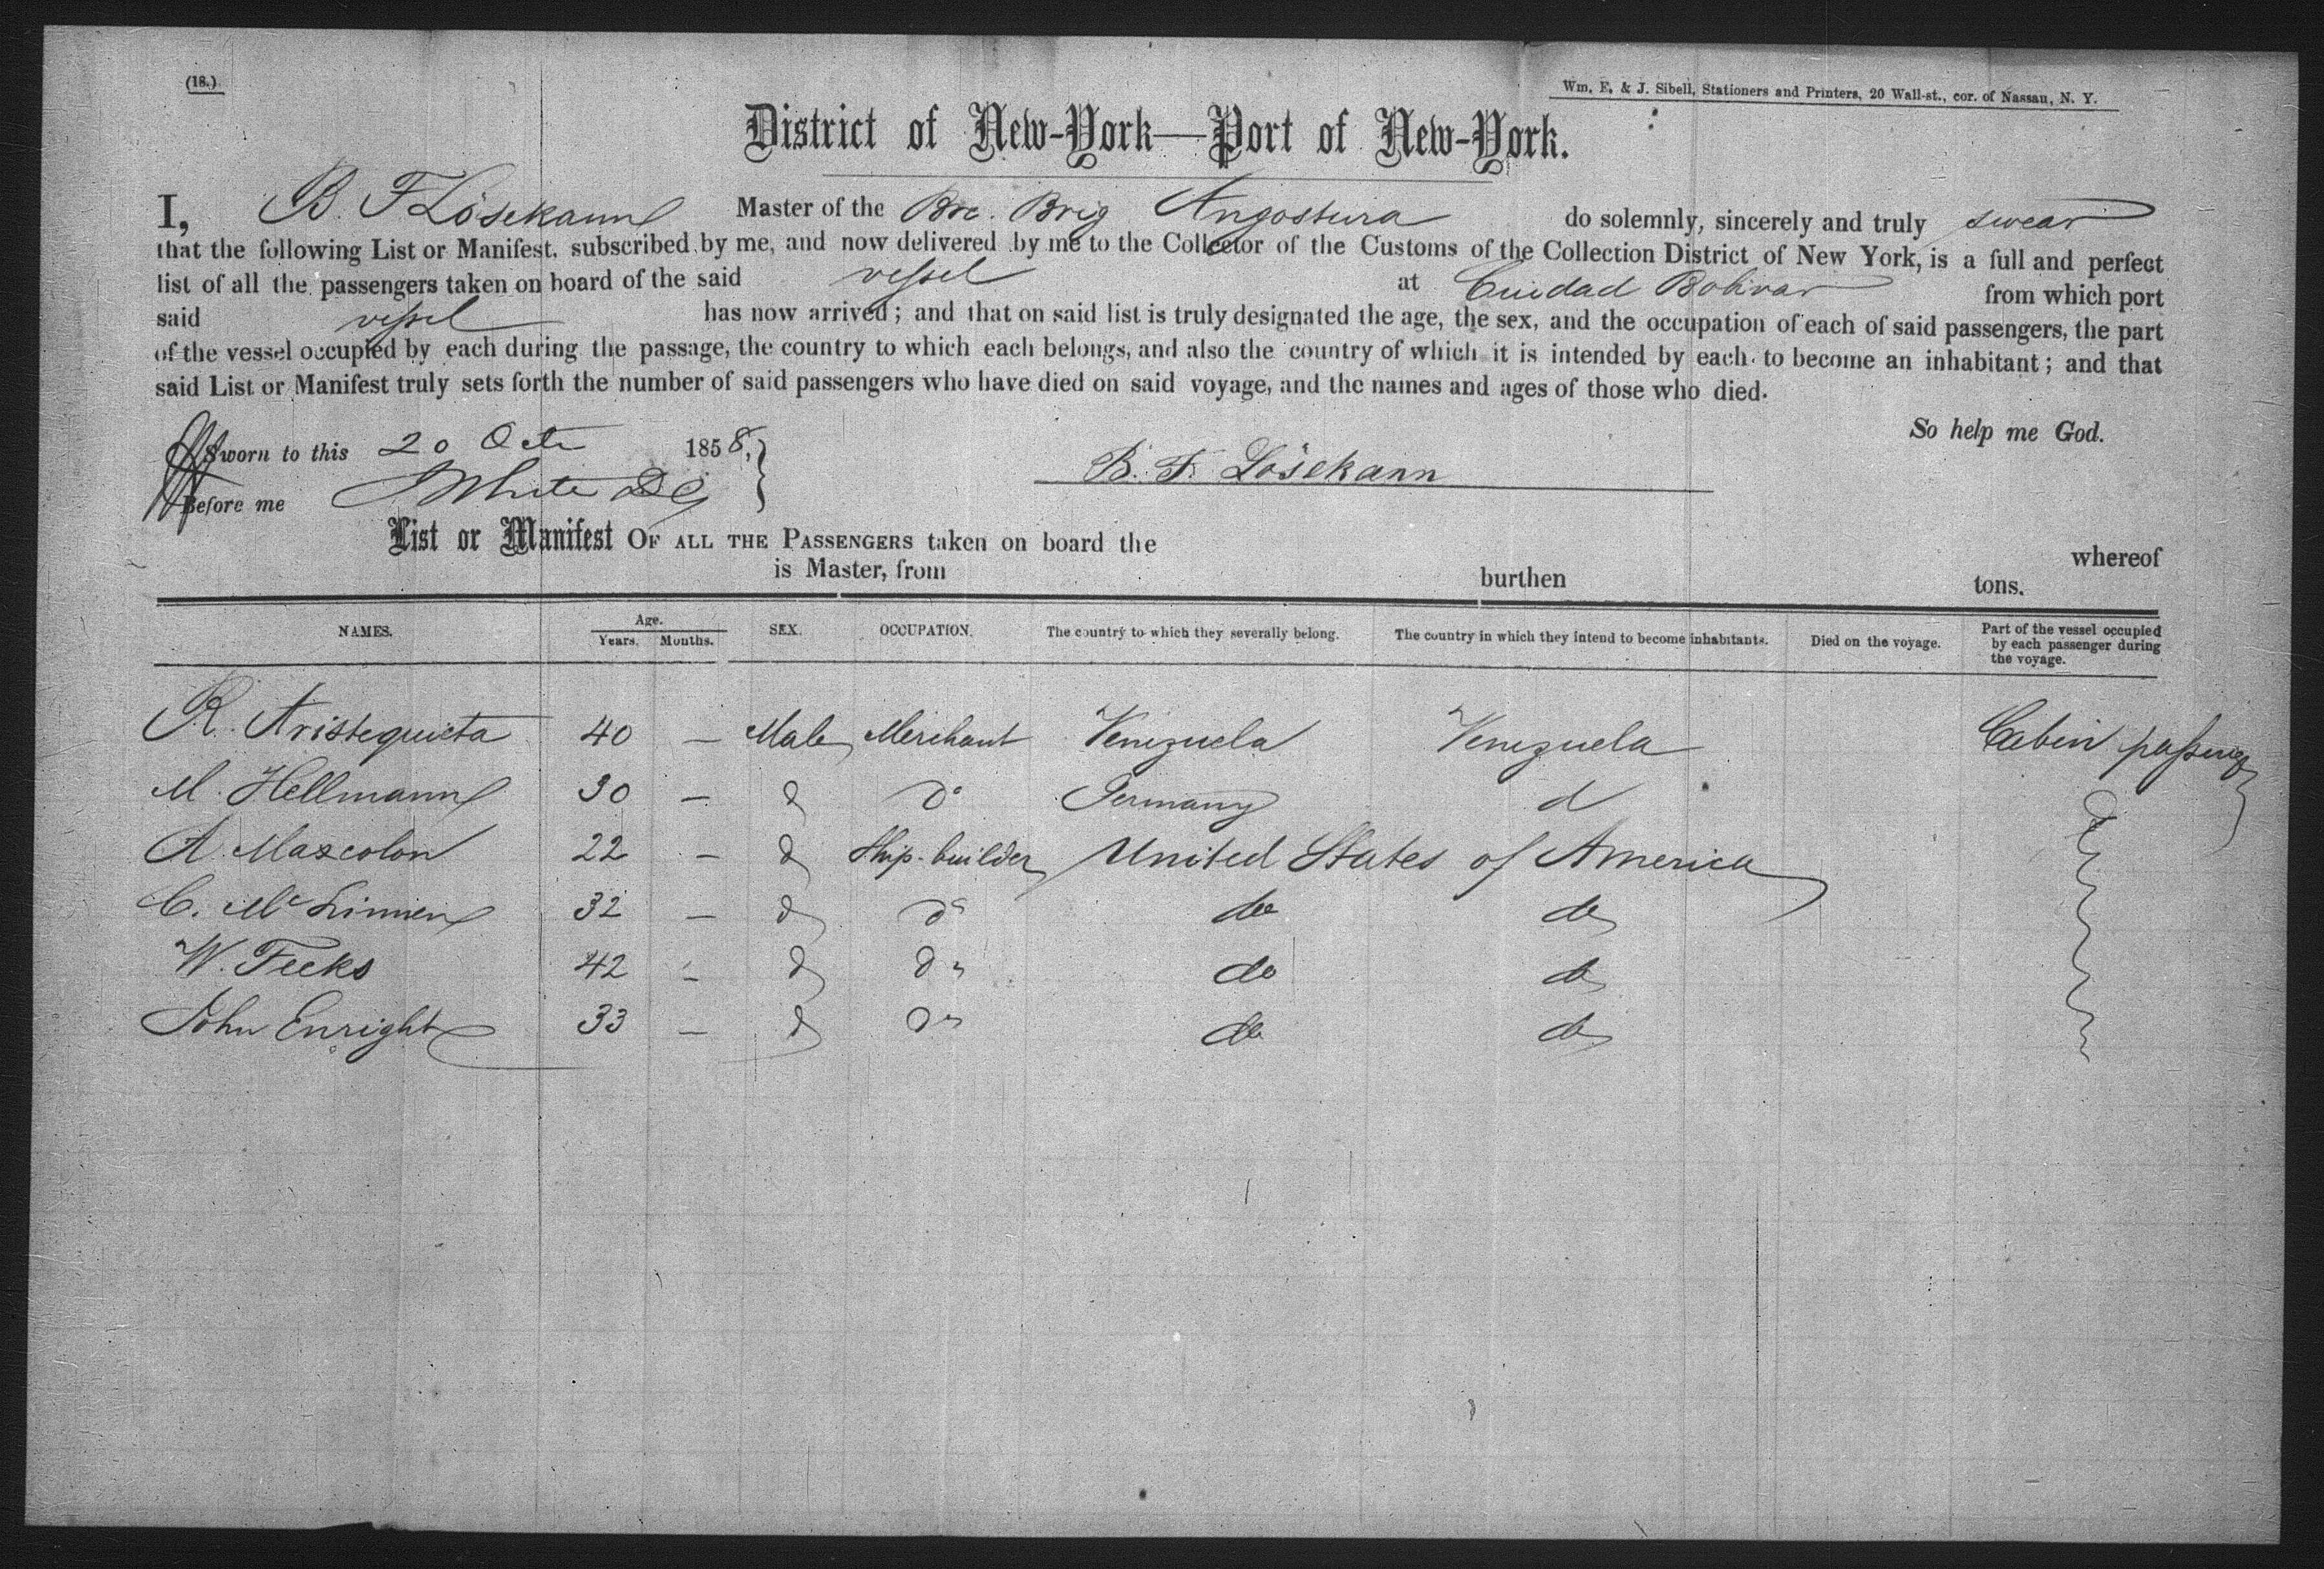 (18.)
Wm. E. & J. Sibell, Stationers and Printers, 20 Wall-st., cor. of Nassau, N. Y.
District of New-York—Port of New-York.
I, B. F Lösekann Master of the Bre. Brig Angostura do solemnly, sincerely and truly swear
that the following List or Manifest, subscribed by me, and now delivered by me to the Collector of the Customs of the Collection District of New York, is a full and perfect
list of all the passengers taken on board of the said vessel at Cuidad Bolivar from which port
said vessel has now arrived; and that on said list is truly designated the age, the sex, and the occupation of each of said passengers, the part
of the vessel occupied by each during the passage, the country to which each belongs, and also the country of which it is intended by each to become an inhabitant; and that
said List or Manifest truly sets forth the number of said passengers who have died on said voyage, and the names and ages of those who died.
So help me God.
Sworn to this 20 Octr 1858,
B. F. Lösekann
Before me White
List or Manifest OF ALL THE PASSENGERS taken on board the whereof
is Master, from burthen tons.
NAMES. Age. Years. Months. SEX. OCCUPATION. The country to which they severally belong. The country in which they intend to become inhabitants. Died on the voyage. Part of the vessel occupied by each passenger during the voyage.
R. Aristequieta 40 — Male Merchant Venezuela Venezuela Cabin passeng
M. Hellmann 30 — d do Germany d
A. Mazcolon 22 — d Ship-builder United States of America
C. Mc Linnen 32 — d do do do
W. Feeks 42 — d do do do
John Enright 33 — d do do do